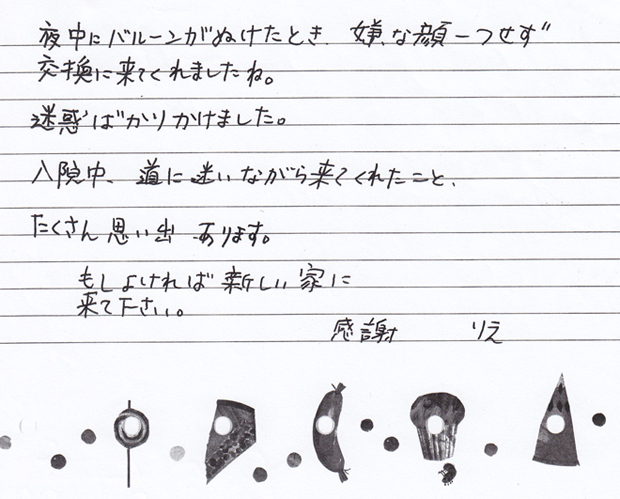 夜中にバルーンがぬけたとき、嫌な顔一つせず
交換に来てくれましたね。
迷惑ばかりかけました。
入院中、道に迷いながら来てくれたこと、
たくさん思い出あります。
もしよければ新しい家に
来て下さい。
感謝 りえ